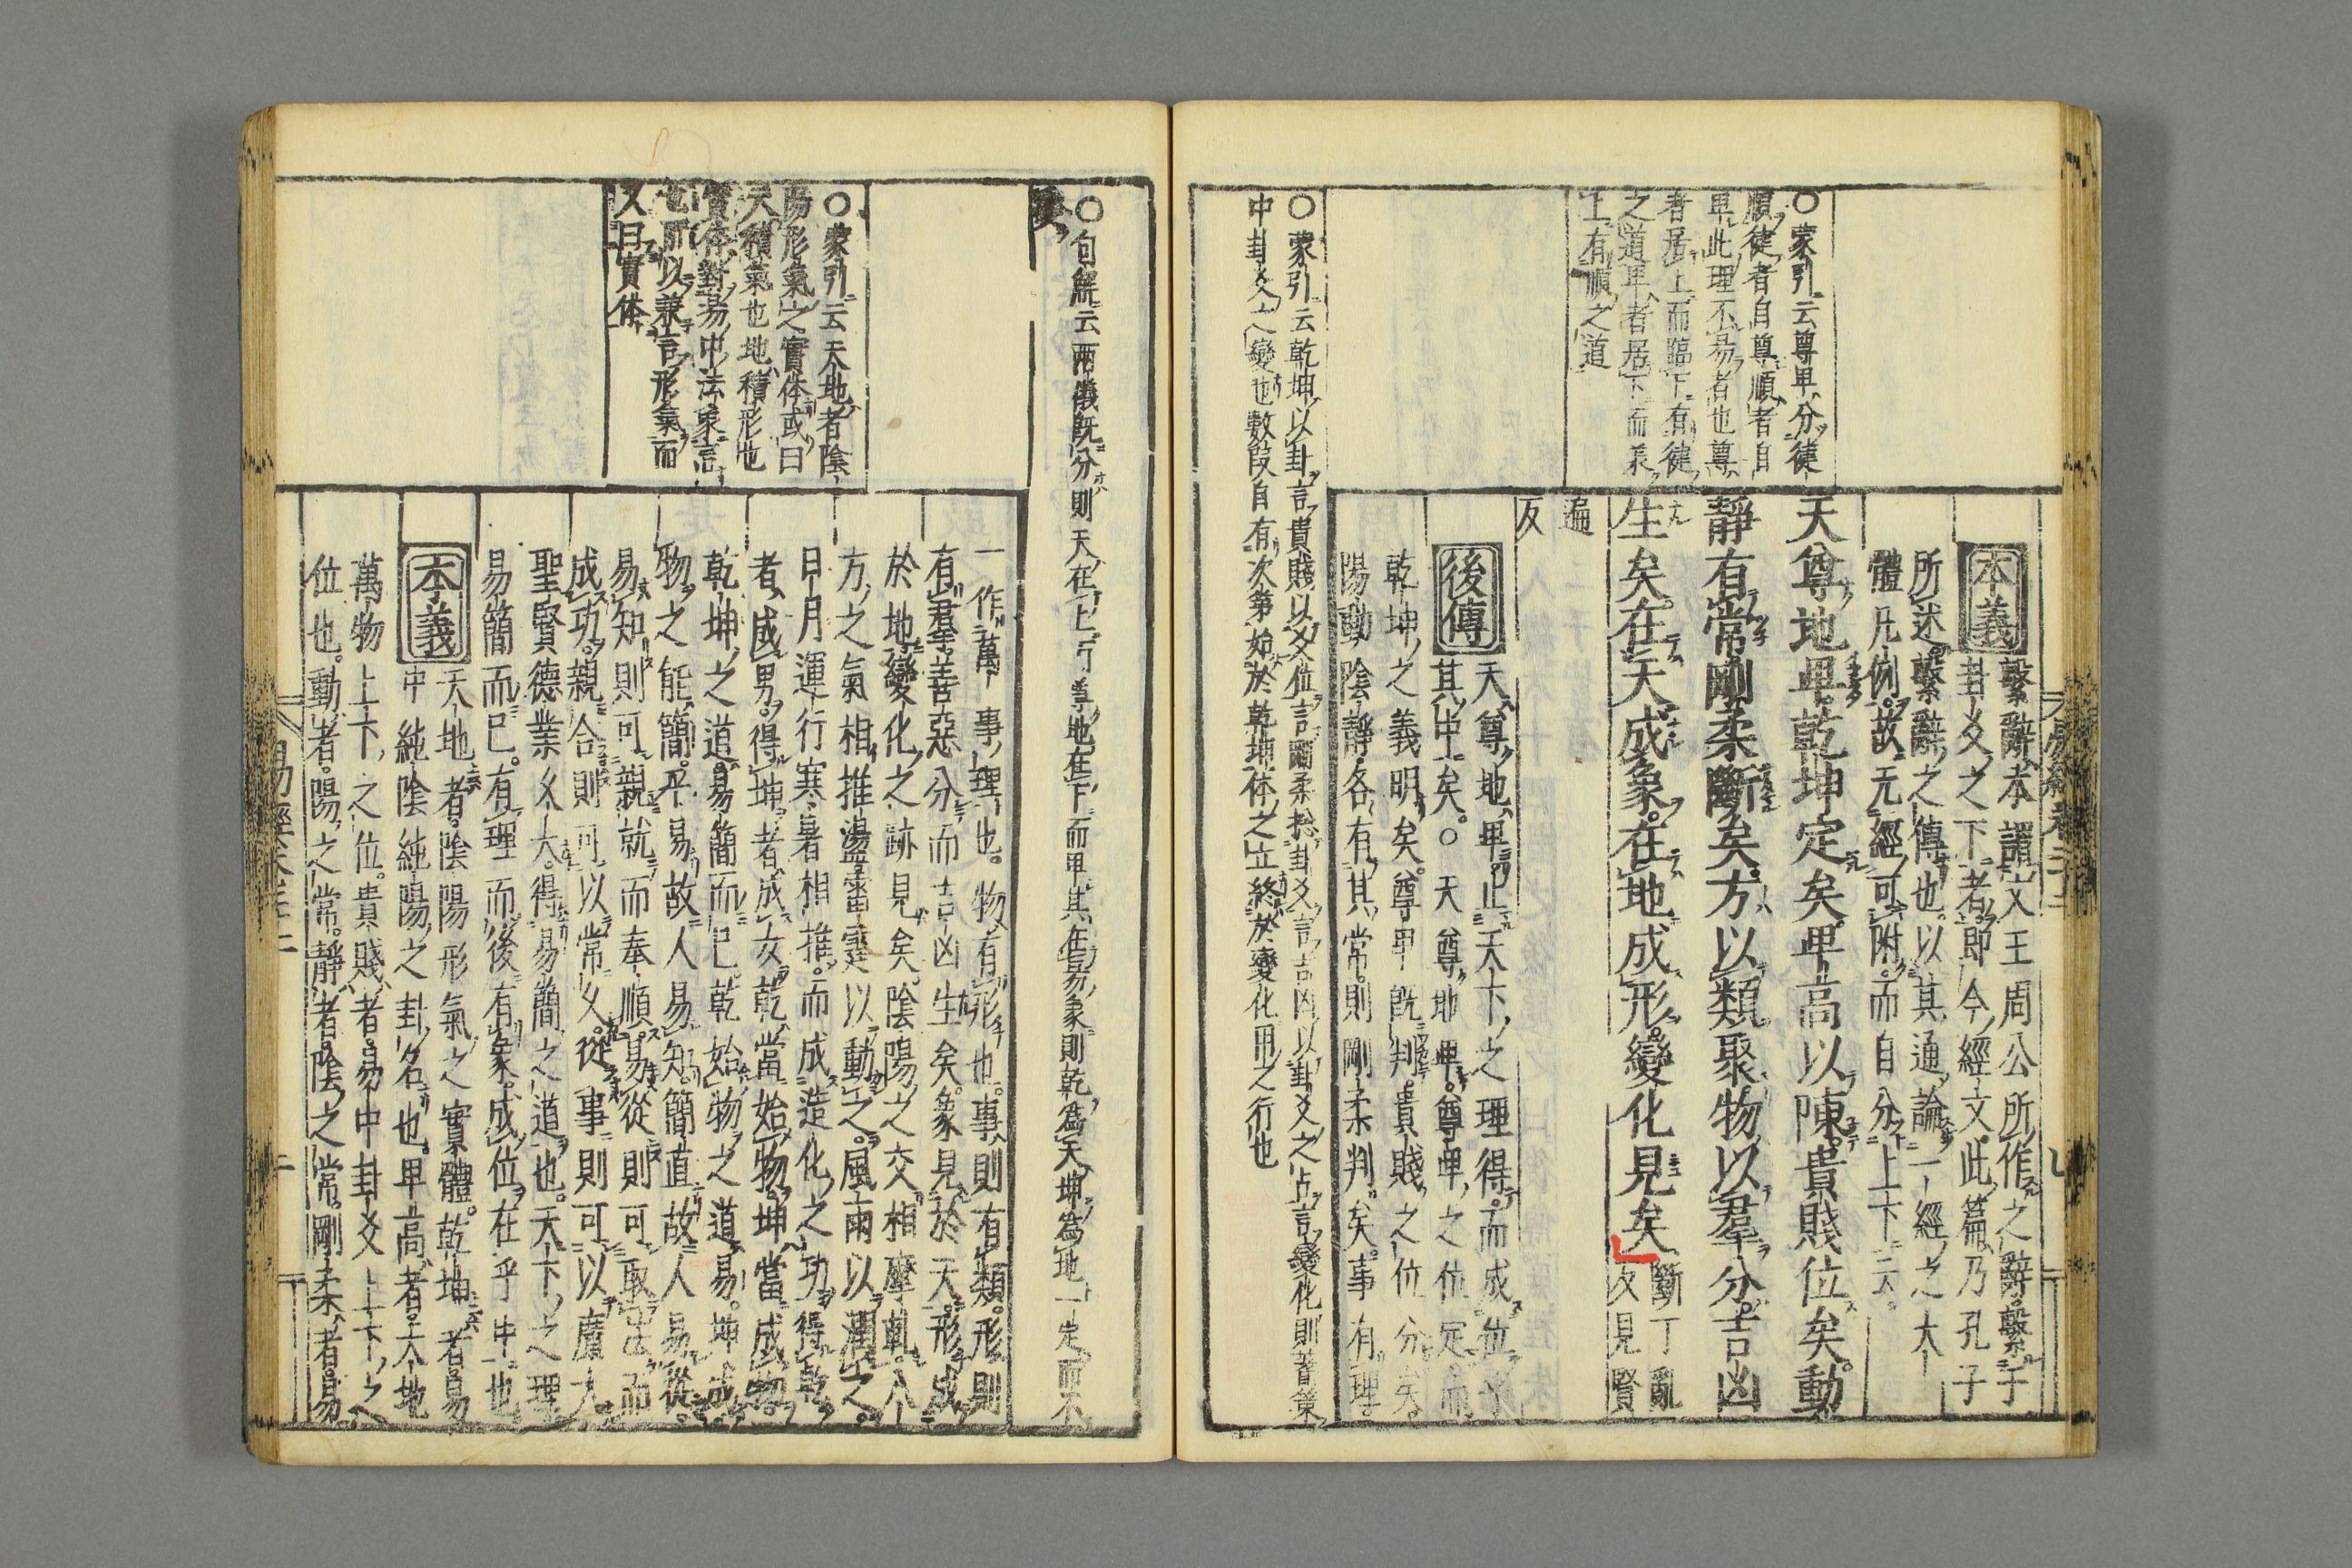 本義
繫辭本謂文王周公所作之辭。繫于
卦爻之下者。即今經文。此篇乃孔子
所述。繫辭之傳也。以其通論一經之大
體凡例。故无經可附。而自分上下云。
○蒙引云尊卑分徤
順徤者自尊順者自
卑此理不易者也尊
者居上而臨下有徤
之道卑者居下而承
上有順之道
天尊地卑。乾坤定矣。卑高以陳。貴賤位矣。動
靜有常。剛柔斷矣。方以類聚。物以羣分。吉凶
生矣。在天成象。在地成形。變化見矣
斷丁亂
反見賢
遍
反
後傳
天尊地卑。止天下之理得。而成位乎
其中矣。○天尊地卑。尊卑之位定。而
乾坤之義明矣。尊卑既判。貴賤之位分矣。
陽動陰靜。各有其常。則剛柔判矣。事有理。
○蒙引云乾坤以卦言貴賤以爻位言剛柔㧾卦爻言吉凶以卦爻之占言變化則蓍策
中卦爻之變也數段自有次第始於乾坤体之立終於變化用之行也
○句解云兩儀既分則天在上而尊地在下而卑其在易象則乾爲天坤爲地一定而不
○蒙引云天地者陰
陽形氣之實体或曰
天積氣也地積形也
實体對易中法象言
也所以兼言形氣而
又曰實体
一作萬事理也。物有形也。事則有類。形則
有羣。善惡分而吉凶生矣。象見於天。形成
於地。變化之跡見矣。陰陽之交相摩軋。八
方之氣相推盪。雷霆以動之。風雨以潤之。
日月運行寒暑相推。而成造化之功。得乾
者。成男。得坤者。成女。乾當始物。坤當成物。
乾坤之道。易簡而已。乾始物之道易。坤成
物之能簡。平易故人易知。簡直故人易從。
易知則可親就而奉順。易從則可取法而
成功。親合則可以常久。從事則可以廣大。
聖賢德業久大。得易簡之道也。天下之理
易簡而已。有理而後有象。成位在乎中也。
本義
天地者。陰陽形氣之實體。乾坤者。易
中純陰純陽之卦名也。卑高者。天地
萬物上下之位。貴賤者。易中卦爻上下之
位也。動者。陽之常。靜者。陰之常。剛柔者。易